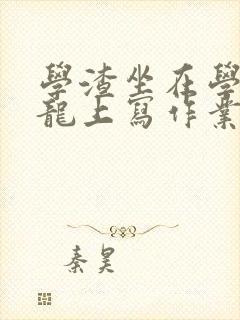 學渣坐在學
龍上寫作業
秦昊